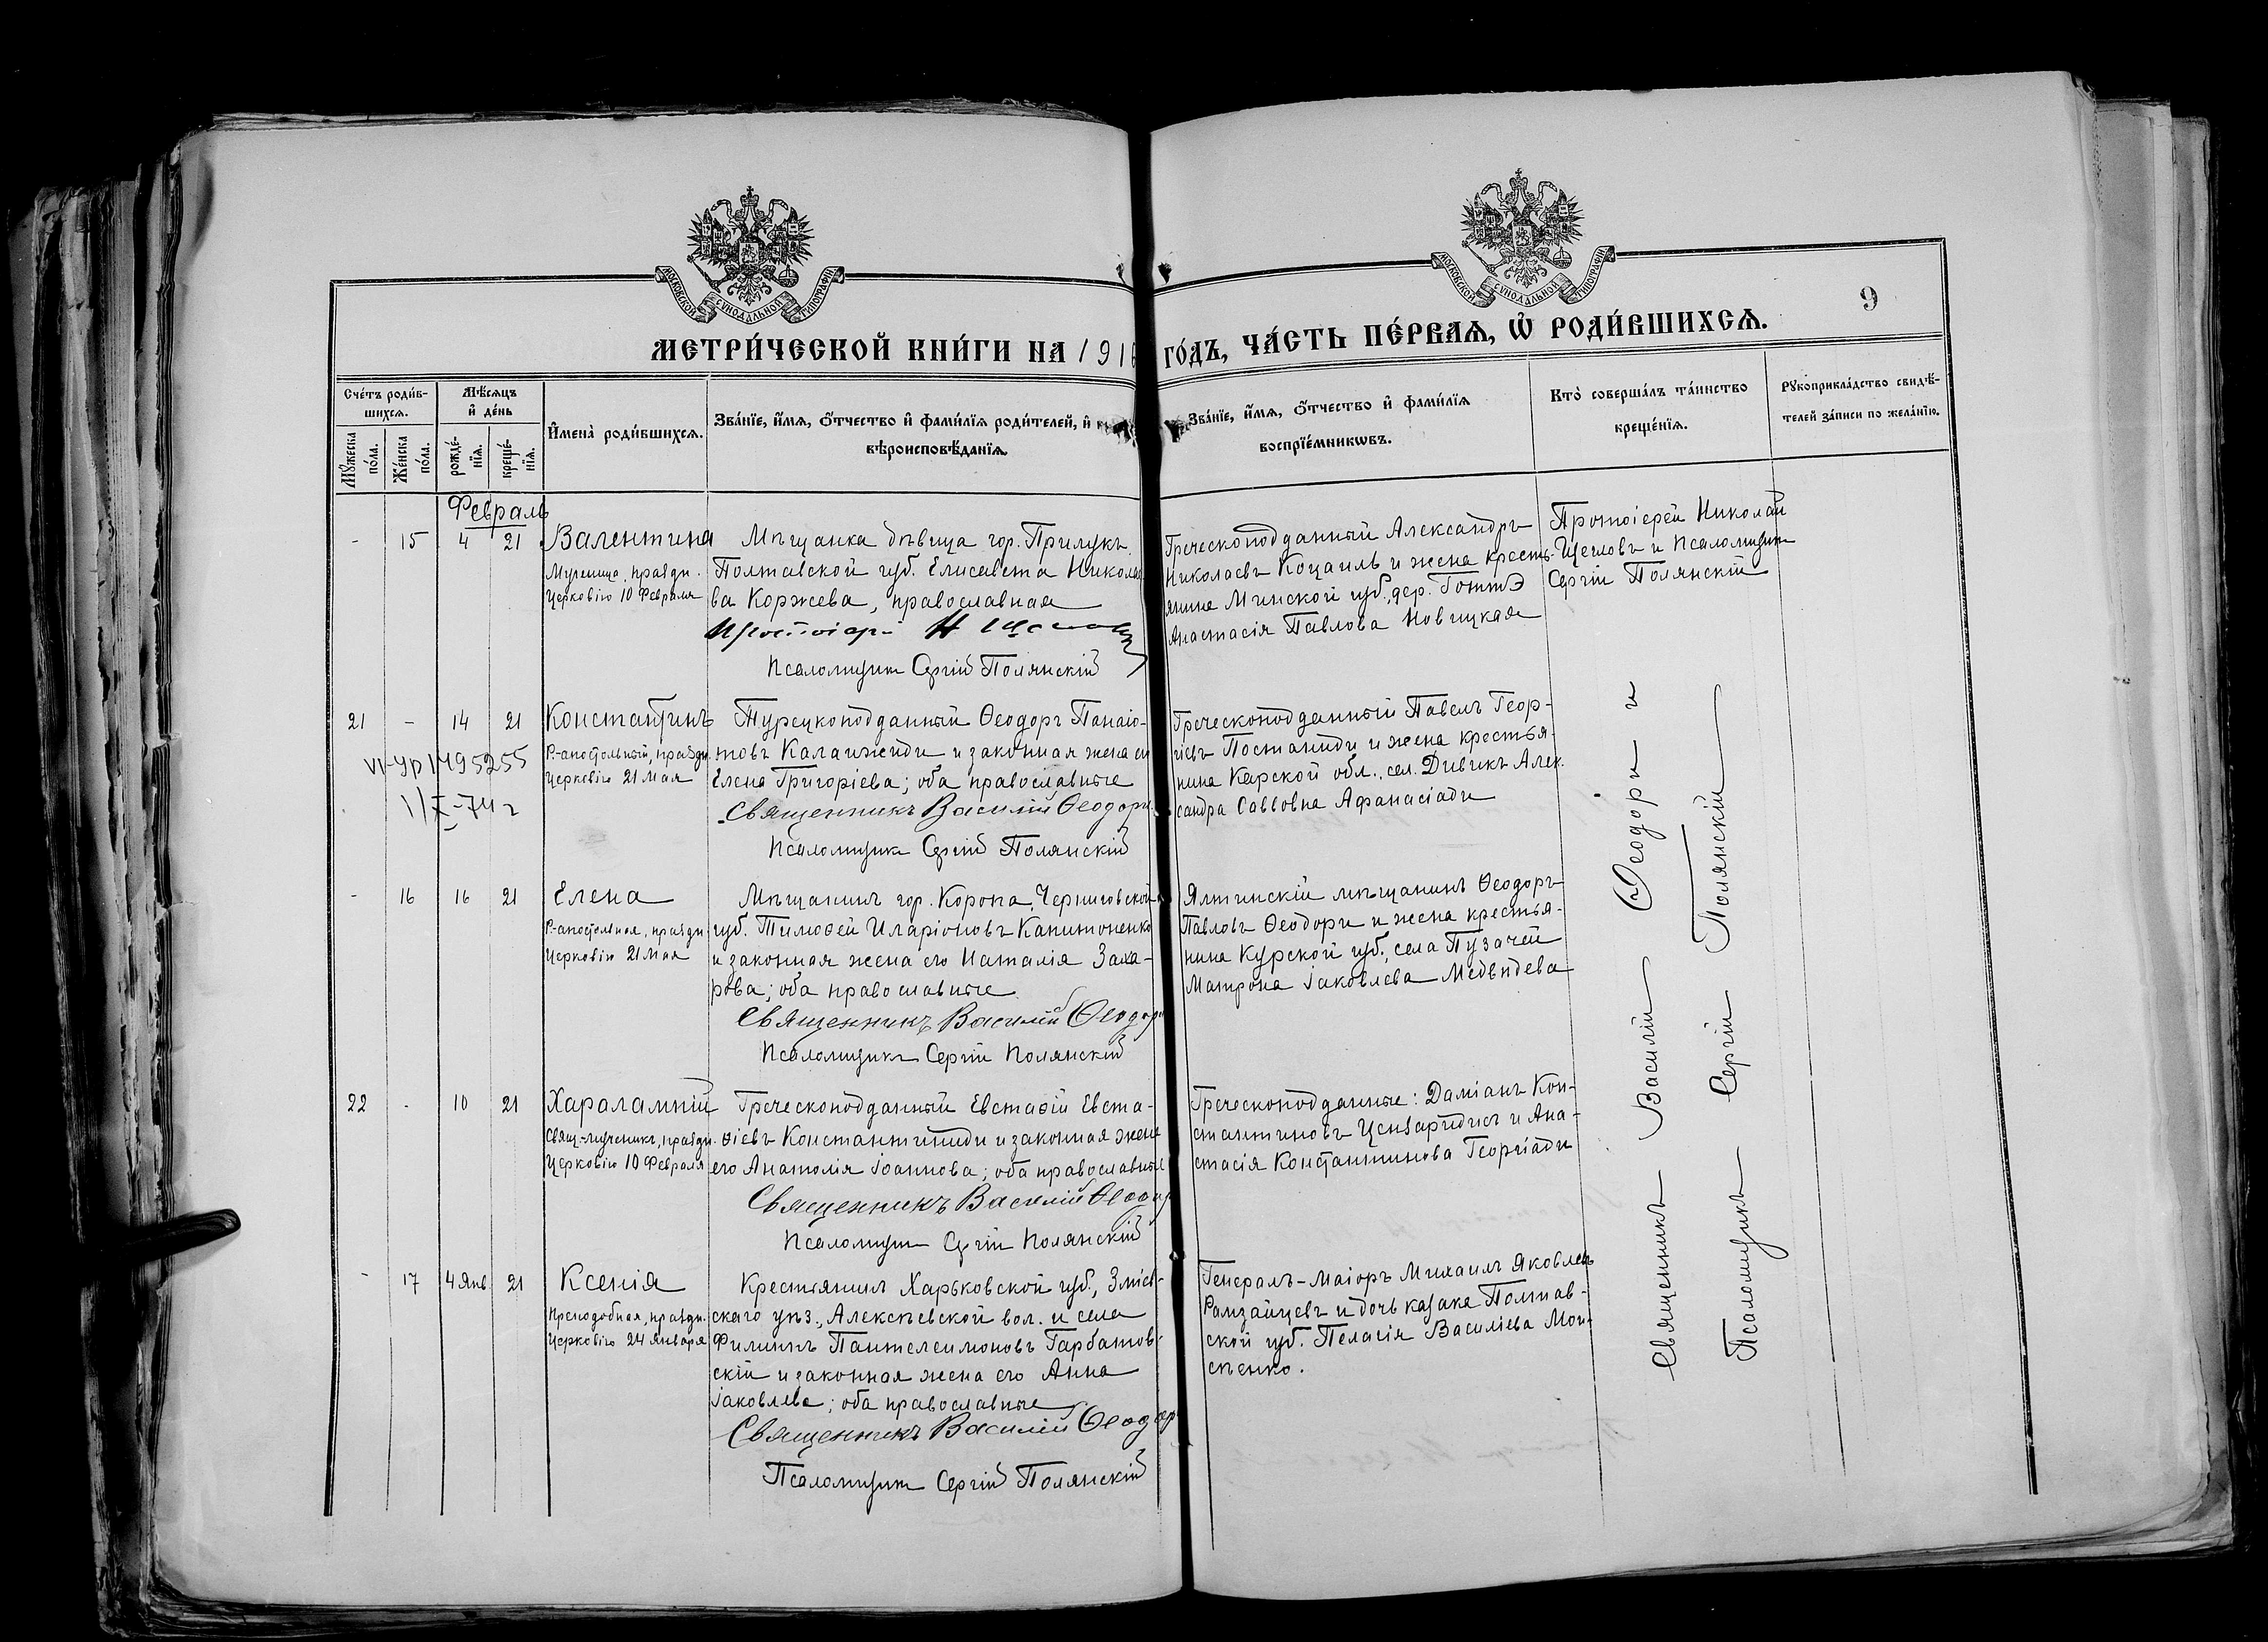 МОСКОВСКОЙ СУНОДАЛЬНОЙ ТИПОГРАФІИ
МОСКОВСКОЙ СУНОДАЛЬНОЙ ТИПОГРАФІИ
9
МЕТРИ́ЧЕСКОЙ КНИ́ГИ НА 191
ГО́ДЪ, ЧА́СТЬ ПЕ́РВАѦ, Ѽ РОДИ́ВШИХСѦ.
Сче́тъ роди́в-
шихсѧ.
Мꙋ́жеска по́ла.
Же́нска по́ла.
Мѣ́сѧцъ и҆ де́нь
рожде́-нїѧ.
креще́-нїѧ.
И҆мена̀ роди́вшихсѧ.
Зва́нїе, и҆́мѧ, ѻ҆́тчество и҆ фами́лїѧ роди́телей, и҆
вѣроисповѣ́данїѧ.
Зва́нїе, и҆́мѧ, ѻ҆́тчество и҆ фами́лїѧ
воспрїе́мникѡвъ.
Кто̀ соверша́лъ та́инство
креще́нїѧ.
Рꙋкоприкла́дство свидѣ́-
телей за́писи по жела́нїю.
Февраль
- 15 4 21 Валентина
Мученица, праздн.
Церковію 10 Февраля
Мѣщанка дѣвица гор. Прилукъ,
Полтавской губ. Елисавета Никола
ва Коржева, православная
Протоіерей Н Щегловъ
Псаломщикъ Сергій Полянскій
Греческоподданный Александръ
Николаевъ Коцаиль и жена кресть-
янина Минской губ., дер. Готтэ
Анастасія Павлова Новицкая
Протоіерей Николай
Щегловъ и Псаломщикъ
Сергій Полянскій
21 - 14 21 Константинъ
Р-апостольный, праздн.
Церковію 21 Мая
VI-УР 1495255
1/X-74 г
Турецкоподданный Ѳеодоръ Панаіо-
товъ Калаижиди и законная жена его
Елена Григоріева; оба православные
Священникъ Василій Ѳеодори
Псаломщикъ Сергій Полянскій
Греческоподданный Павелъ Геор-
гіевъ Постаниди и жена крестья-
нина Карской обл., сел. Дивикъ Алек-
сандра Саввовна Афанасіади
- 16 16 21 Елена
Р-апостольная, праздн.
Церковію 21 Мая
Мѣщанинъ гор. Коропа, Черниговской
губ. Тимоѳей Иларіоновъ Капитоненко
и законная жена его Наталія Заха-
рова; оба православные
Священникъ Василій Ѳеодори
Псаломщикъ Сергій Полянскій
Ялтинскій мѣщанинъ Ѳеодоръ
Павловъ Ѳеодори и жена крестья-
нина Курской губ., села Пузачей
Матрона Іаковлева Медвѣдева
22 - 10 21 Харалампій
Свящ.-мученикъ, праздн.
Церковію 10 Февраля
Греческоподданный Евстаѳій Евста-
ѳіевъ Константиниди и законная жена
его Анатолія Іоаннова; оба православные
Священникъ Василій Ѳеодори
Псаломщикъ Сергій Полянскій
Греческоподданные: Даміанъ Кон-
стантиновъ Цензаридисъ и Ана-
стасія Константинова Георгіади
- 17 4 Янв 21 Ксенія
Преподобная, праздн.
Церковію 24 Января
Крестьянинъ Харьковской губ., Зміев-
скаго уѣз., Алексѣевской вол. и села
Филиппъ Пантелеимоновъ Гарбатов-
скій и законная жена его Анна
Іаковлева; оба православные
Священникъ Василій Ѳеодори
Псаломщикъ Сергій Полянскій
Генералъ-Маіоръ Михаилъ Яковлевъ
Рамзайцевъ и дочь казака Полтав-
ской губ. Пелагія Василіева Мои-
сѣенко.
Священникъ Василій Ѳеодори и
Псаломщикъ Сергій Полянскій